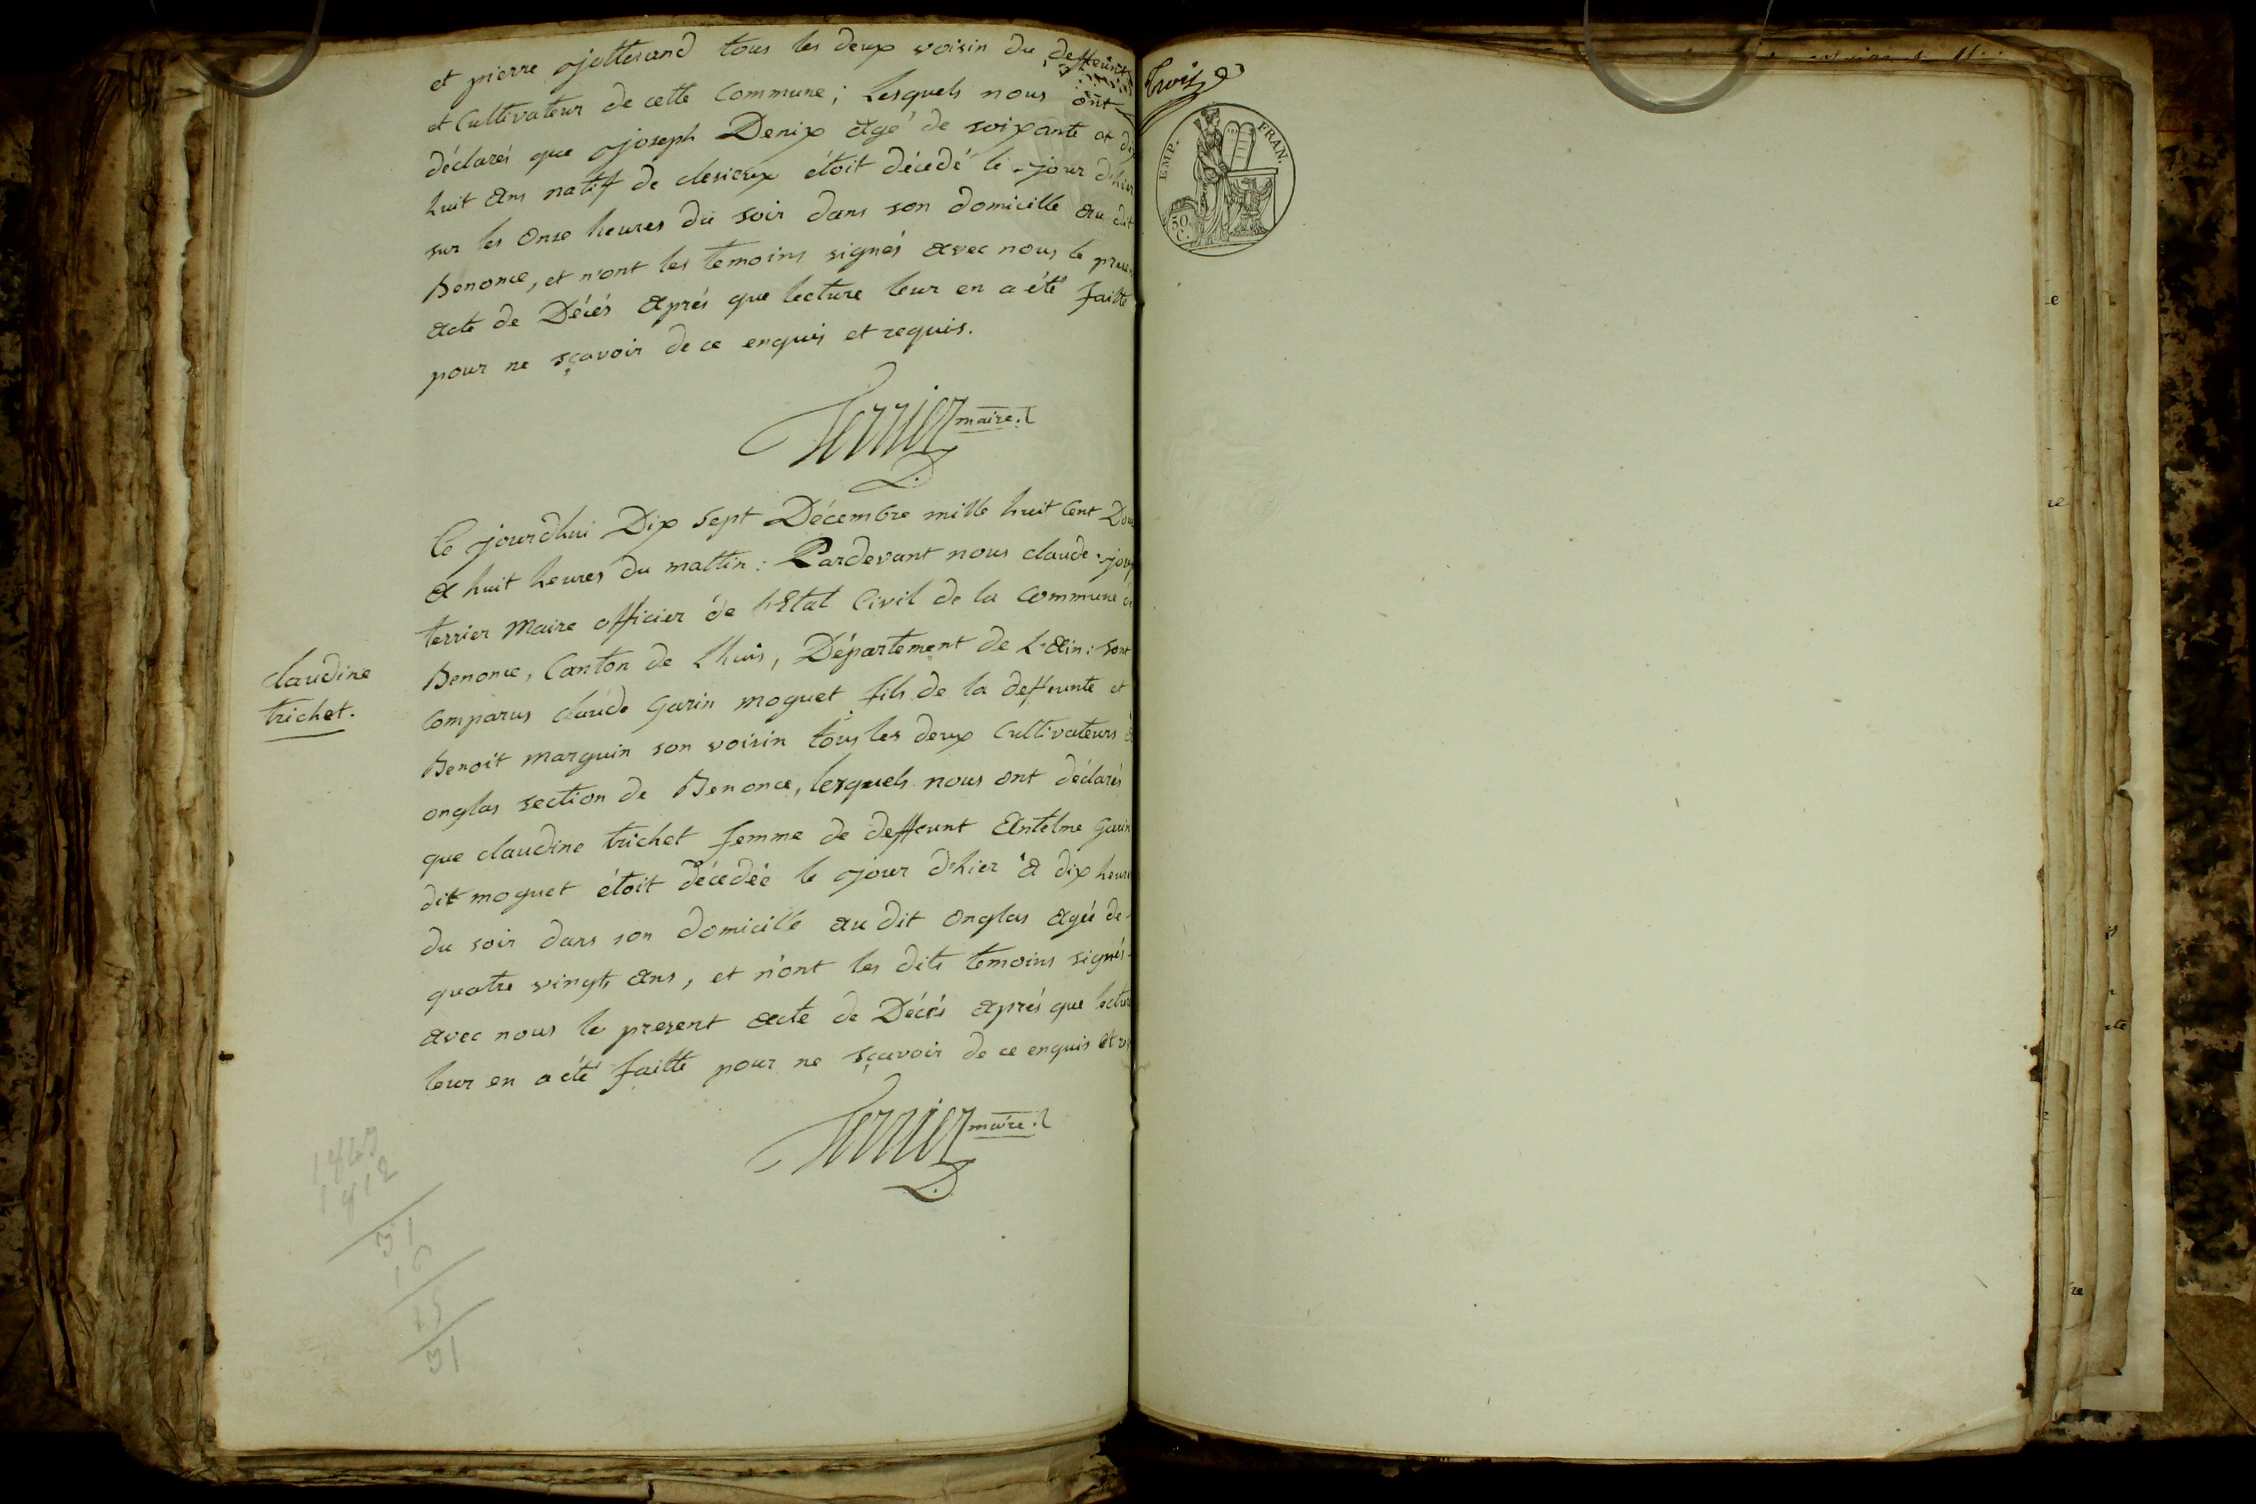 et pierre jotterand tous les deux voisin du deffunt
et Cultivateur de cette Commune; Lesquels nous ont
déclarés que joseph Denix agé de soixante et dix
huit ans natif de étoit décédé le jour d'hier
sur les onse heures du soir dans son domicille au dit
Benonce, et n'ont les temoins signés avec nous le present
acte de Décés aprés que lecture leur en a été faitte
pour ne sçavoir de ce enquis et requis.
Terrier maire.
Ce jourdhui Dix Sept Décembre mille huit Cent Douze
a huit heures du mattin: Pardevant nous claude
terrier Maire officier de l'Etat Civil de la Commune de
Benonce, Canton de Lhuis, Département de L'ain: sont
Comparus claude Garin moguet fils de la deffunte et
Benoit Marguin son voisin tous les deux Cultivateurs à
onglas section de Benonce, lesquels nous ont déclarés
que claudine trichet femme de deffunt Antelme Garin
dit moguet étoit décedée le jour d'hier à dix heures
du soir dans son domicille au dit onglas agée de
quatre vingts ans, et n'ont les dits temoins signés
avec nous le present acte de Décés aprés que lecture
leur en a été faitte pour ne sçavoir de ce enquis et
Terrier maire.
claudine
trichet.
1812
31
16
15
31
EMP. FRAN.
50
C.